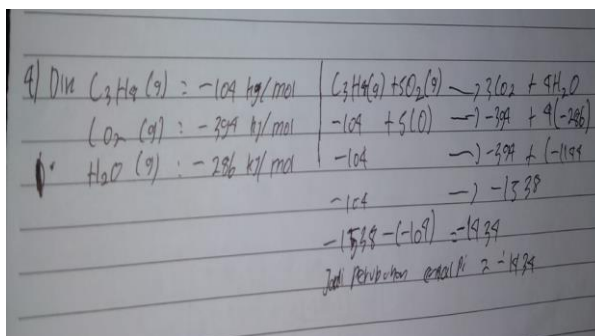 4) Din C3H8 (g) : -104 kg/mol
CO2 (g) : -394 kj/mol
H2O (g) : -286 kj/mol
C3H8(g) + 5O2(g) —> 3CO2 + 4H2O
-104 + 5(0) —> -394 + 4(-286)
-104 —> -394 + (-1144
-104 —> -1538
-1538 - (-104) = -1434
Jadi Perubahan entalpi = -1434